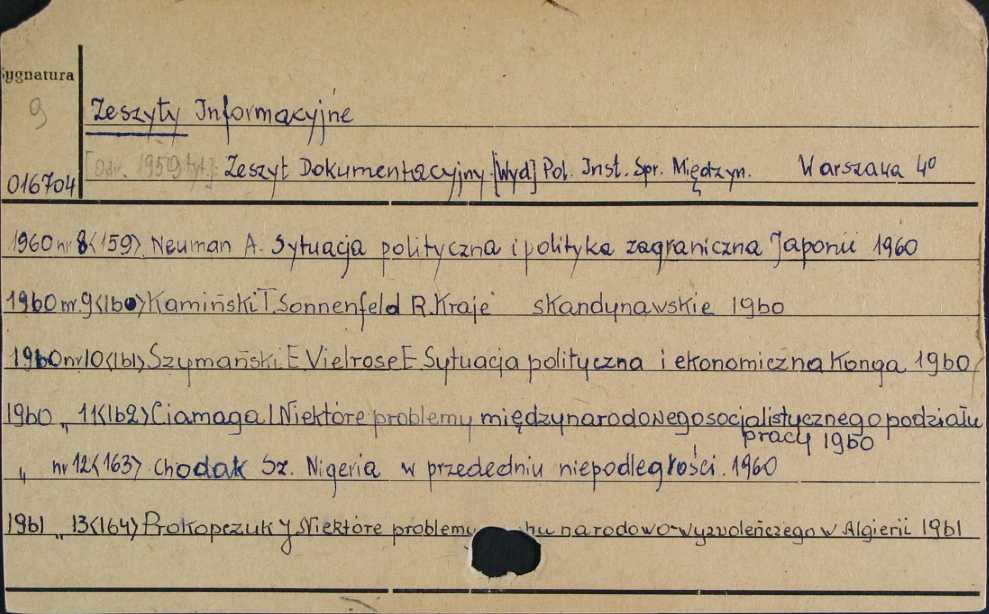 Sygnatura
9
Zeszyty Informacyjne
016704 [Od r. 1959 tyt.]: Zeszyt Dokumentacyjny. [Wyd] Pol. Inst. Spr. Międzyn. Warszawa 4º
1960 nr 8<159> Neuman A. Sytuacja polityczna i polityka zagraniczna Japonii 1960
1960 nr. 9<160> Kamiński T. Sonnenfeld R. Kraje skandynawskie 1960
1960 nr 10<161> Szymański E Vielrose E. Sytuacja polityczna i ekonomiczna Konga 1960
1960 „ 11<162> Ciamaga L Niektóre problemy międzynarodowego socjalistycznego podziału
pracy 1960
„ nr 12<163> Chodak Sz. Nigeria w przededniu niepodległości. 1960
1961 „ 13<164> Prokopczuk J. Niektóre problemy narodowo-wyzwoleńczego w Algierii 1961